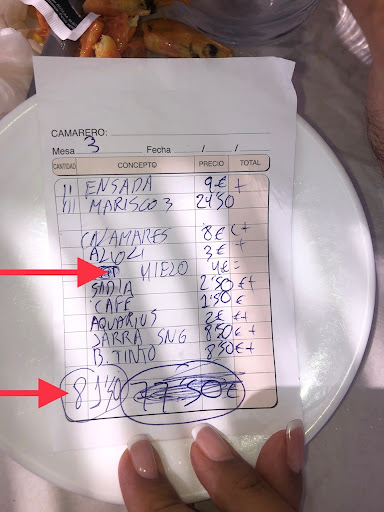 CAMARERO:
Mesa 3 Fecha / /
CANTIDAD CONCEPTO PRECIO TOTAL
II ENSADA 9€ +
III MARISCO 3 24'50
CALAMARES 8€ +
ALIOLI 3€ +
HIELO 4€ -
SADIA 2'50€ +
CAFE 1'50€
AQUARIUS 2€ €+
JARRA SNG 8'50€ +
B. TINTO 8'50€ +
81'50 77'50€